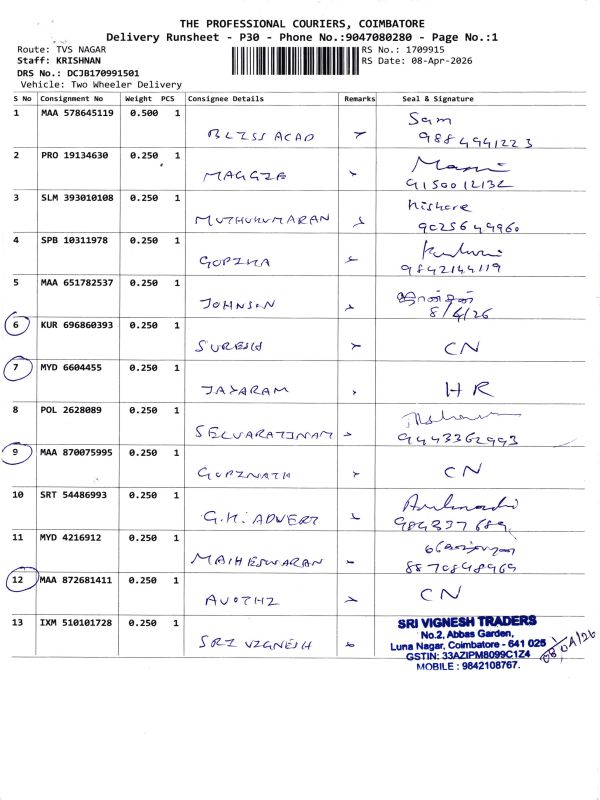 THE PROFESSIONAL COURIERS, COIMBATORE
Delivery Runsheet - P30 - Phone No.:9047080280 - Page No.:1
Route: TVS NAGAR RS No.: 1709915
Staff: KRISHNAN RS Date: 08-Apr-2026
DRS No.: DCJB170991501
Vehicle: Two Wheeler Delivery
S No Consignment No Weight PCS Consignee Details Remarks Seal & Signature
1 MAA 578645119 0.500 1
Sam
BLISS ACAD 9884941223
2 PRO 19134630 0.250 1
MAGGIE 9150012132
3 SLM 393010108 0.250 1
Kishore
MUTHUKUMARAN 9025649960
4 SPB 10311978 0.250 1
GOPIKA 9842144119
5 MAA 651782537 0.250 1
JOHNSON 8/4/26
6 KUR 696860393 0.250 1
SURESH CN
7 MYD 6604455 0.250 1
JAYARAM HR
8 POL 2628089 0.250 1
SELVARATINAM 9443362993
9 MAA 870075995 0.250 1
GOPINATH CN
10 SRT 54486993 0.250 1
G.H. ADVERT
11 MYD 4216912 0.250 1
MAIHESWARAN 8870848969
12 MAA 872681411 0.250 1
CN
13 IXM 510101728 0.250 1
SRI VIGNESH
SRI VIGNESH TRADERS
No.2, Abbas Garden,
Luna Nagar, Coimbatore - 641 025
GSTIN: 33AZIPM8099C1Z4
MOBILE : 9842108767.
08/04/26